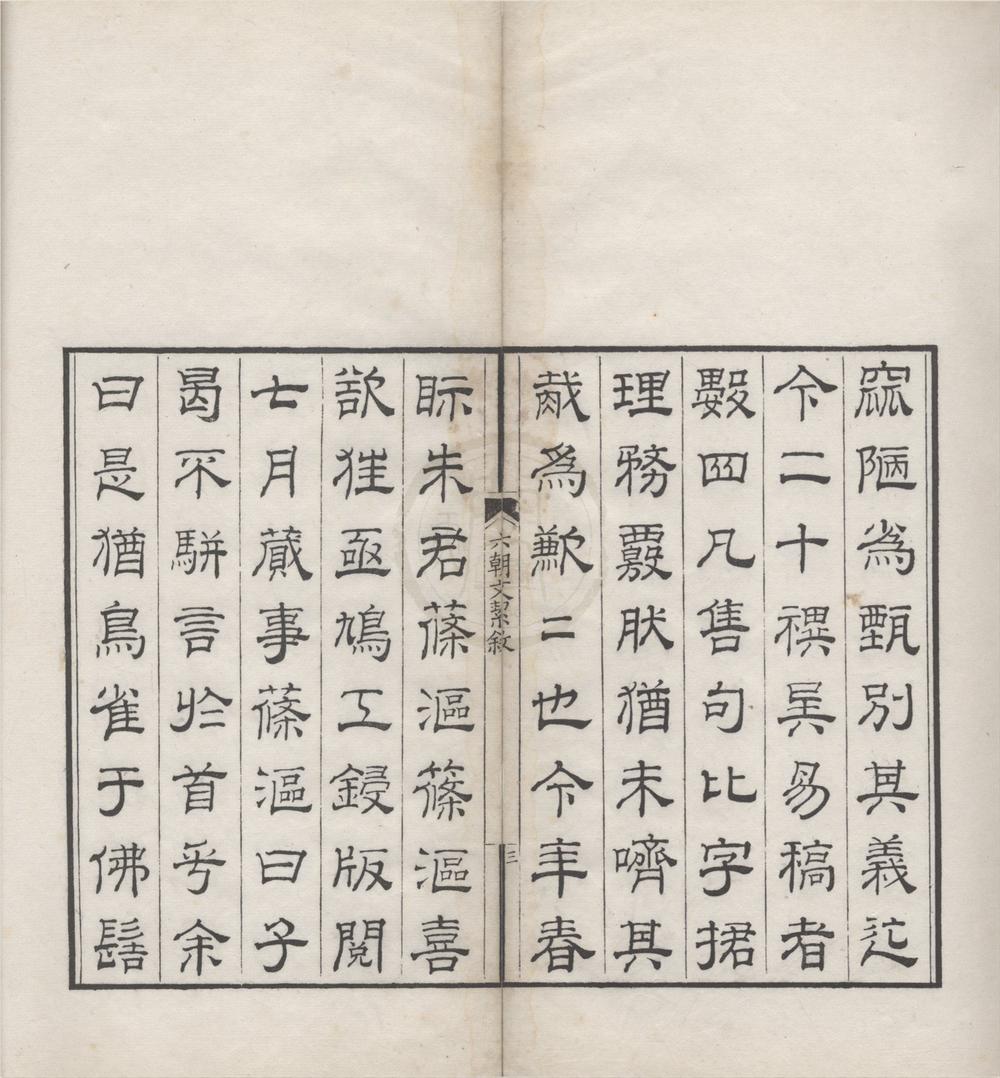 窳陋為甄別其義迄
今二十禩矣易稿者
數四凡售句比字捃
理務覈肰猶未嚌其
胾為歉二也今年春
眎朱君篠漚篠漚喜
欲狂亟鳩工鋟版閱
七月蕆事篠漚曰子
曷不駢言於首乎余
曰是猶鳥雀于佛髻
六朝文絜敘
三